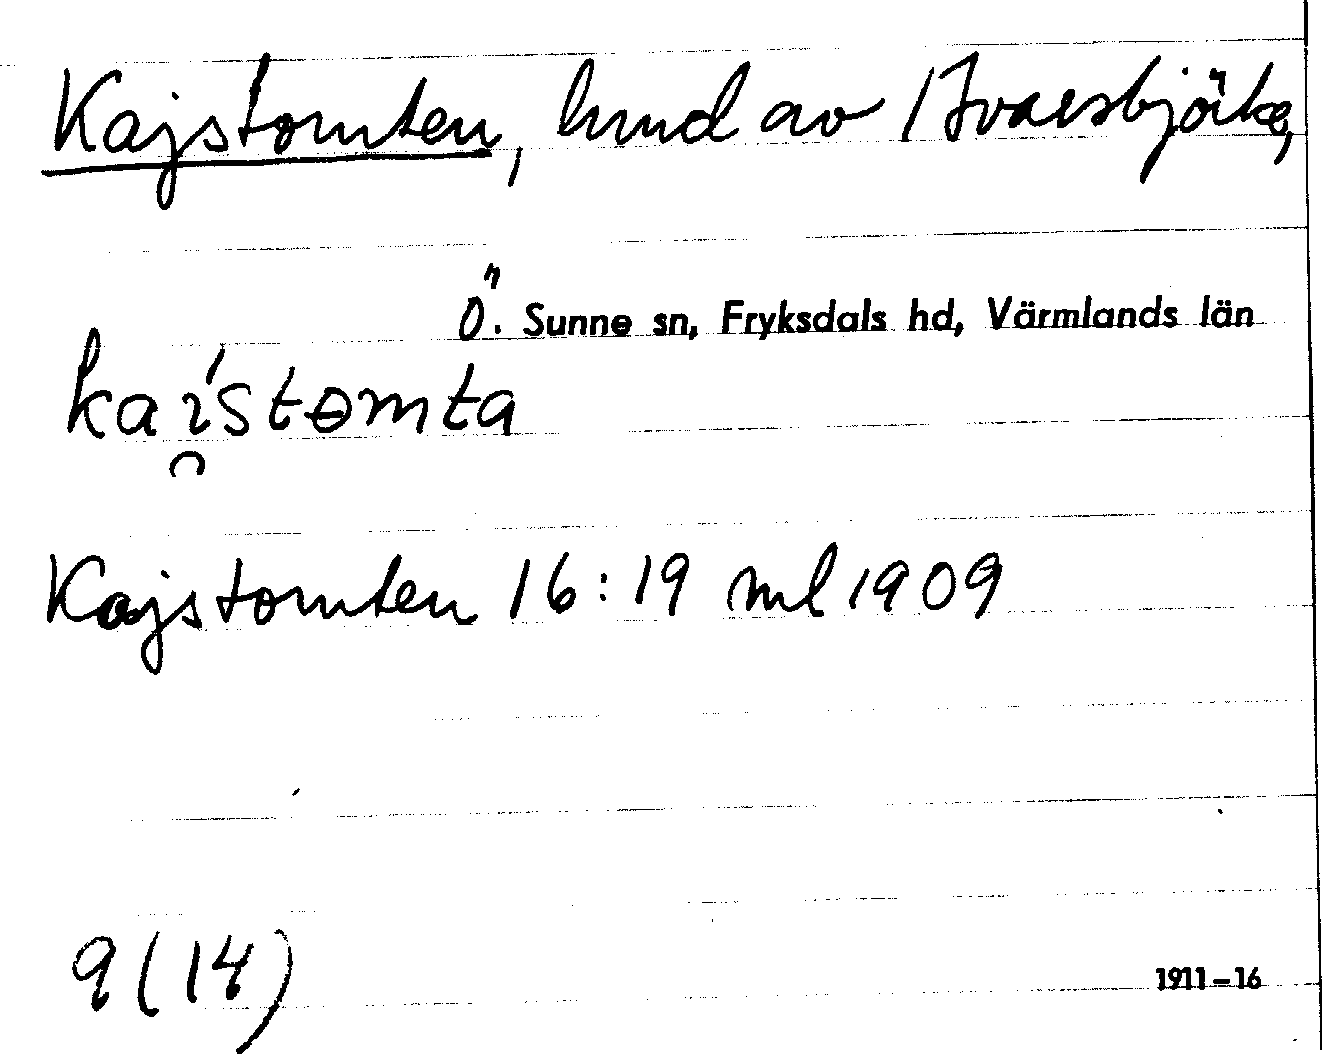 Kajstomten, hmd av 1 Ivarsbjörke,
Ö. Sunne sn, Fryksdals hd, Värmlands län
kai̯´stɵmta
Kajstomten 16:19 ml 1909
9 (14)
1911–16